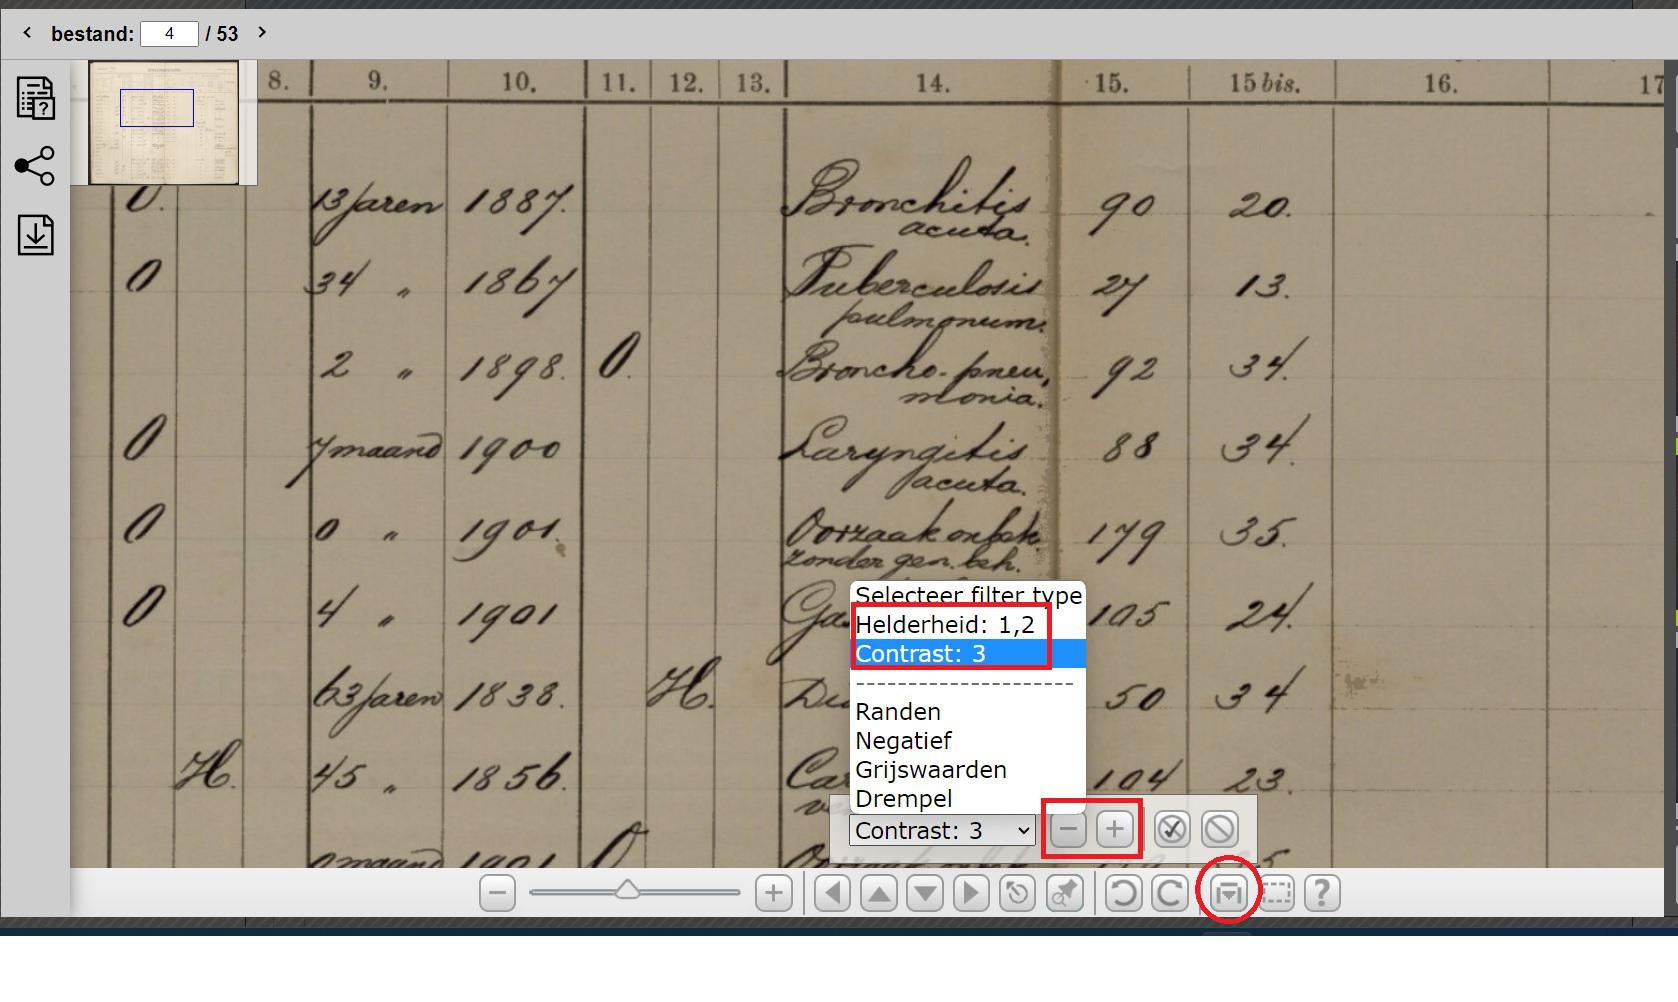 bestand: 4 / 53
8. 9. 10. 11. 12. 13. 14. 15. 15 bis. 16. 17
0. 13 Jaren 1887. Bronchitis 90 20.
acuta.
0 34 „ 1867 Tuberculosis 27 13.
pulmonum.
2 „ 1898. 0. Broncho-pneu, 92 34.
monia.
0 7 maand 1900 Laryngitis 88 34.
acuta.
0 0 „ 1901. Oorzaak onbek 179 35.
zonder gen. beh.
Selecteer filter type
0 4 „ 1901 Ga 105 24.
Helderheid: 1,2
Contrast: 3
---------------------
63 Jaren 1838. H. Du 50 34
Randen
Negatief
H. 45 „ 1856. Ca 104 23.
Grijswaarden
Drempel
Contrast: 3
maand 1901 0